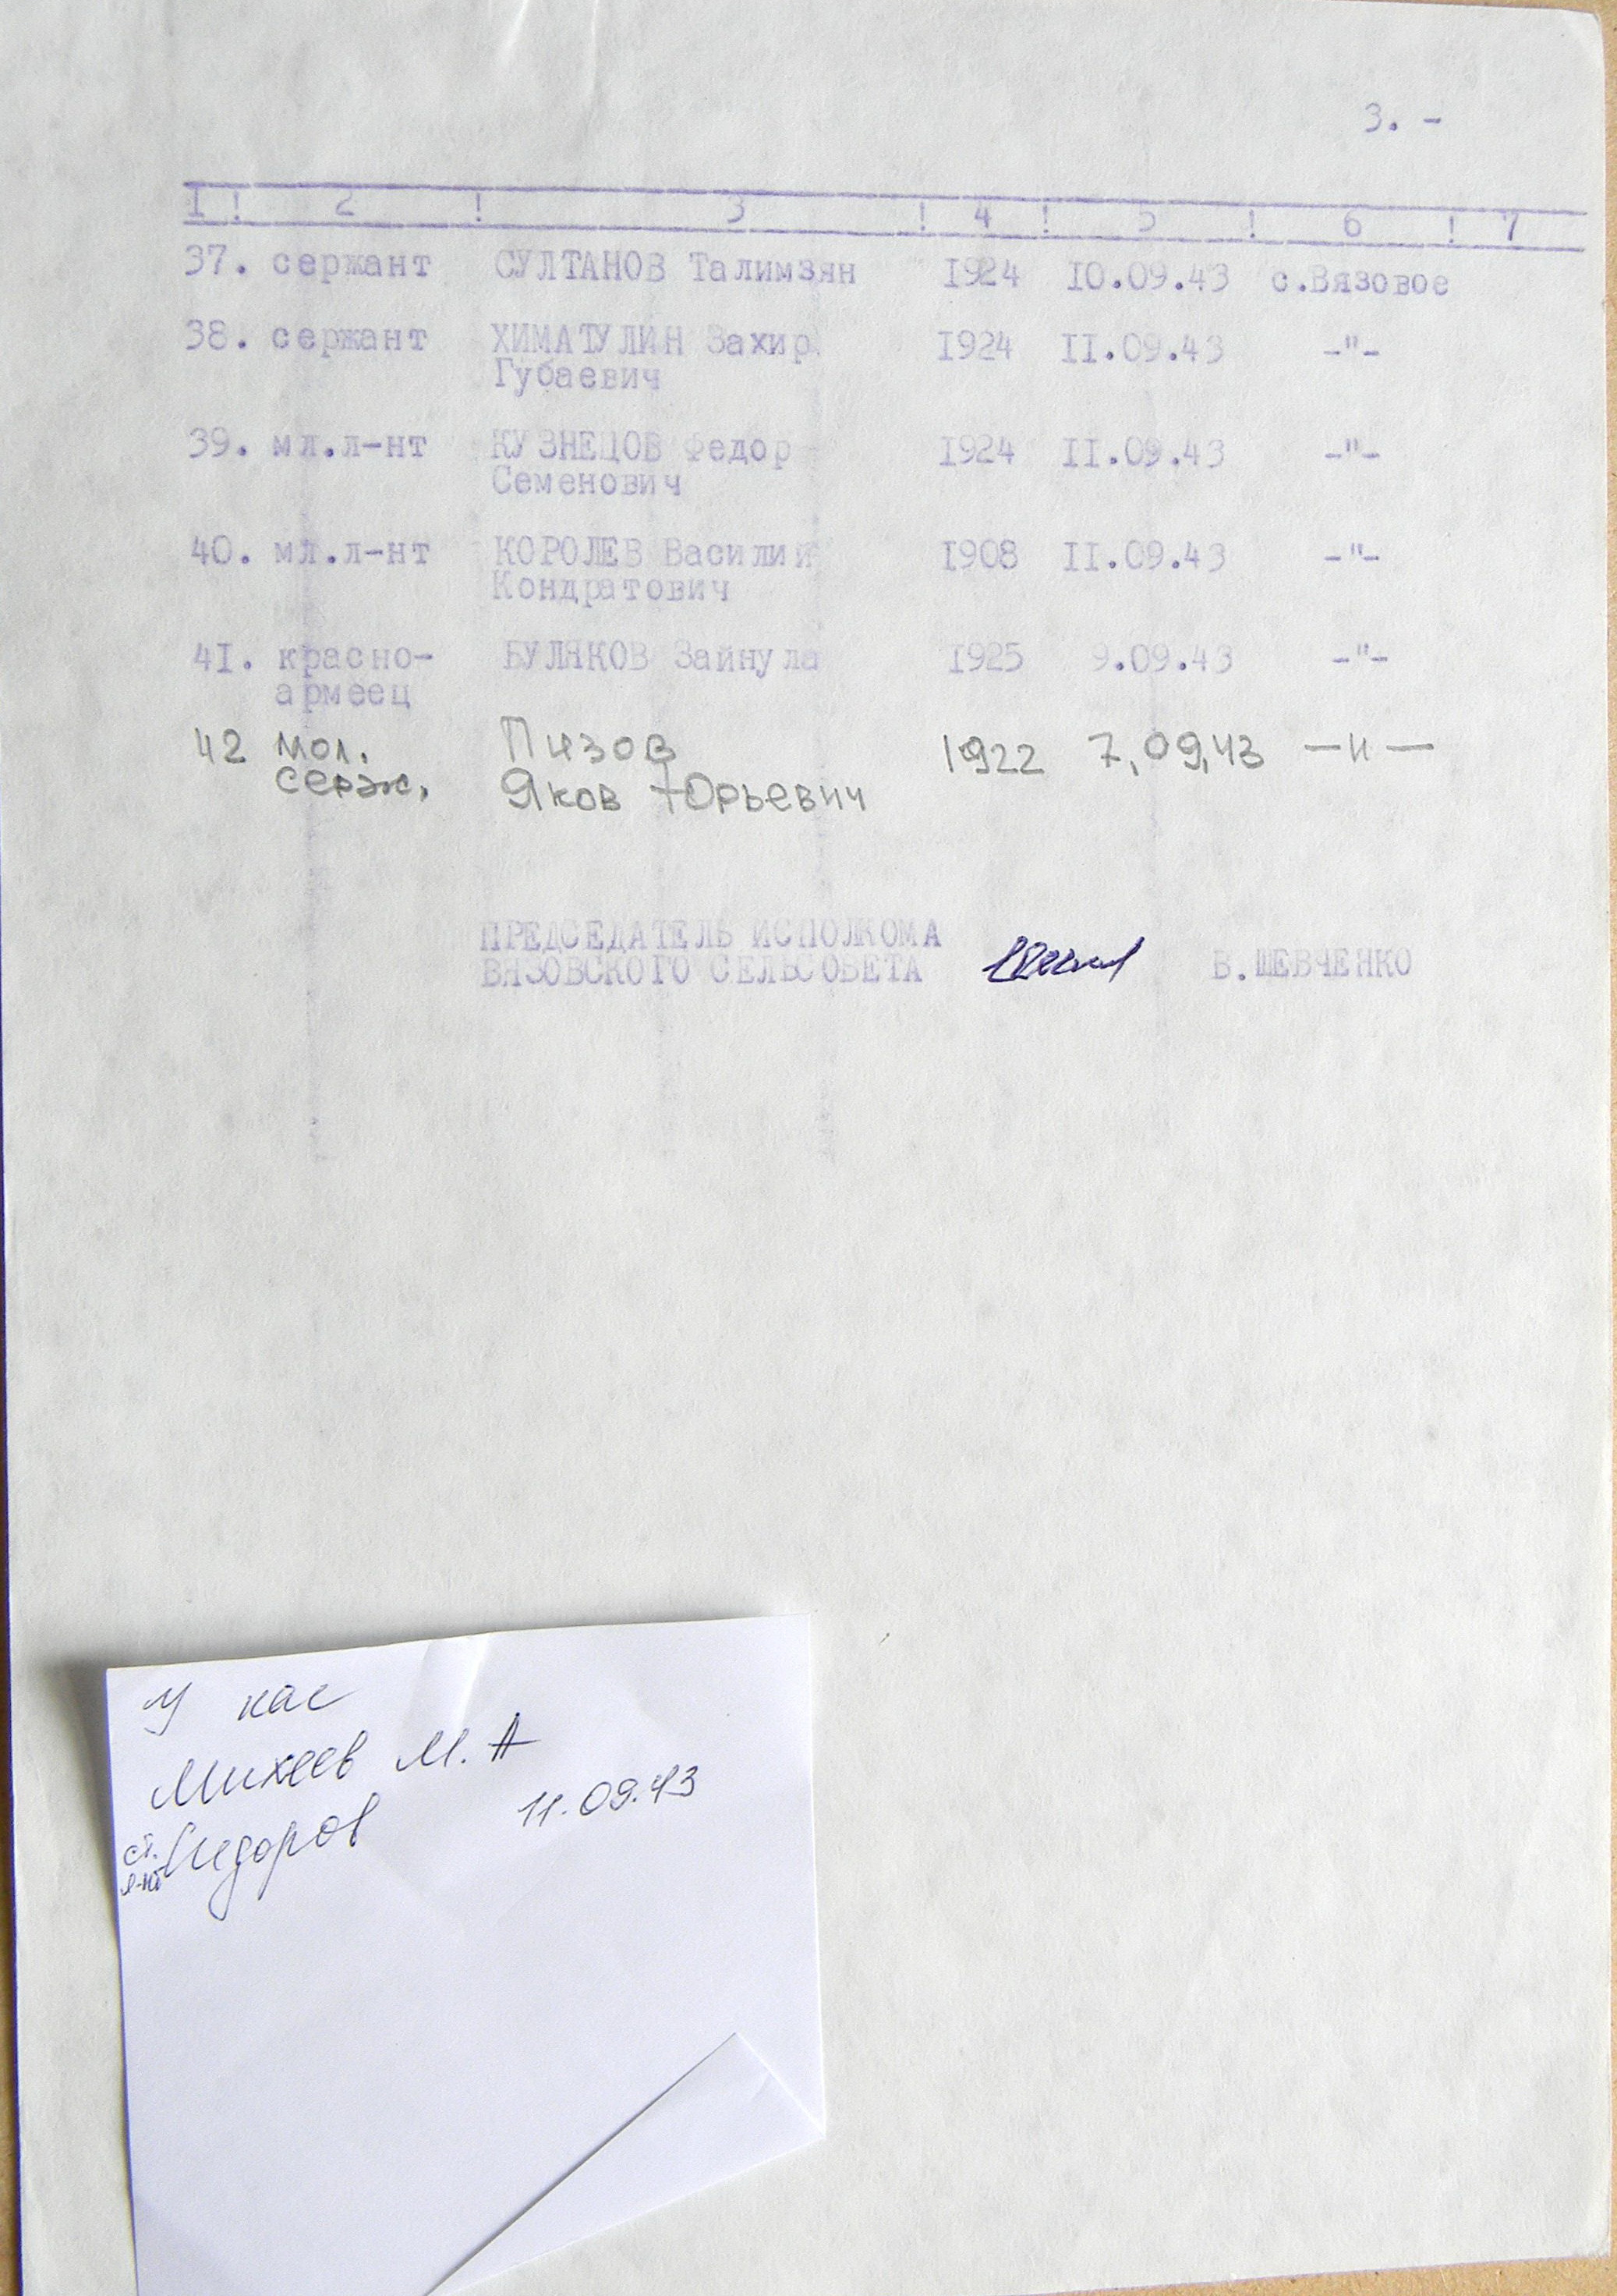 3. -
I ! 2 ! 3 ! 4 ! 5 ! 6 ! 7
37. сержант СУЛТАНОВ Талимзян 1924 10.09.43 с.Вязовое
38. сержант ХИМАТУЛИН Захир 1924 11.09.43 -"-
Губаевич
39. мл.л-нт КУЗНЕЦОВ Федор 1924 11.09.43 -"-
Семенович
40. мл.л-нт КОРОЛЕВ Василий 1908 11.09.43 -"-
Кондратович
41. красно- БУЛЯКОВ Зайнула 1925 9.09.43 -"-
армеец
42 мол. Пизов 1922 7,09,43 —"—
серж. Яков Юрьевич
ПРЕДСЕДАТЕЛЬ ИСПОЛКОМА
ВЯЗОВСКОГО СЕЛЬСОВЕТА В.ШЕВЧЕНКО
У нас
Михеев М.А
ст. Сидоров 11.09.43
л-нт